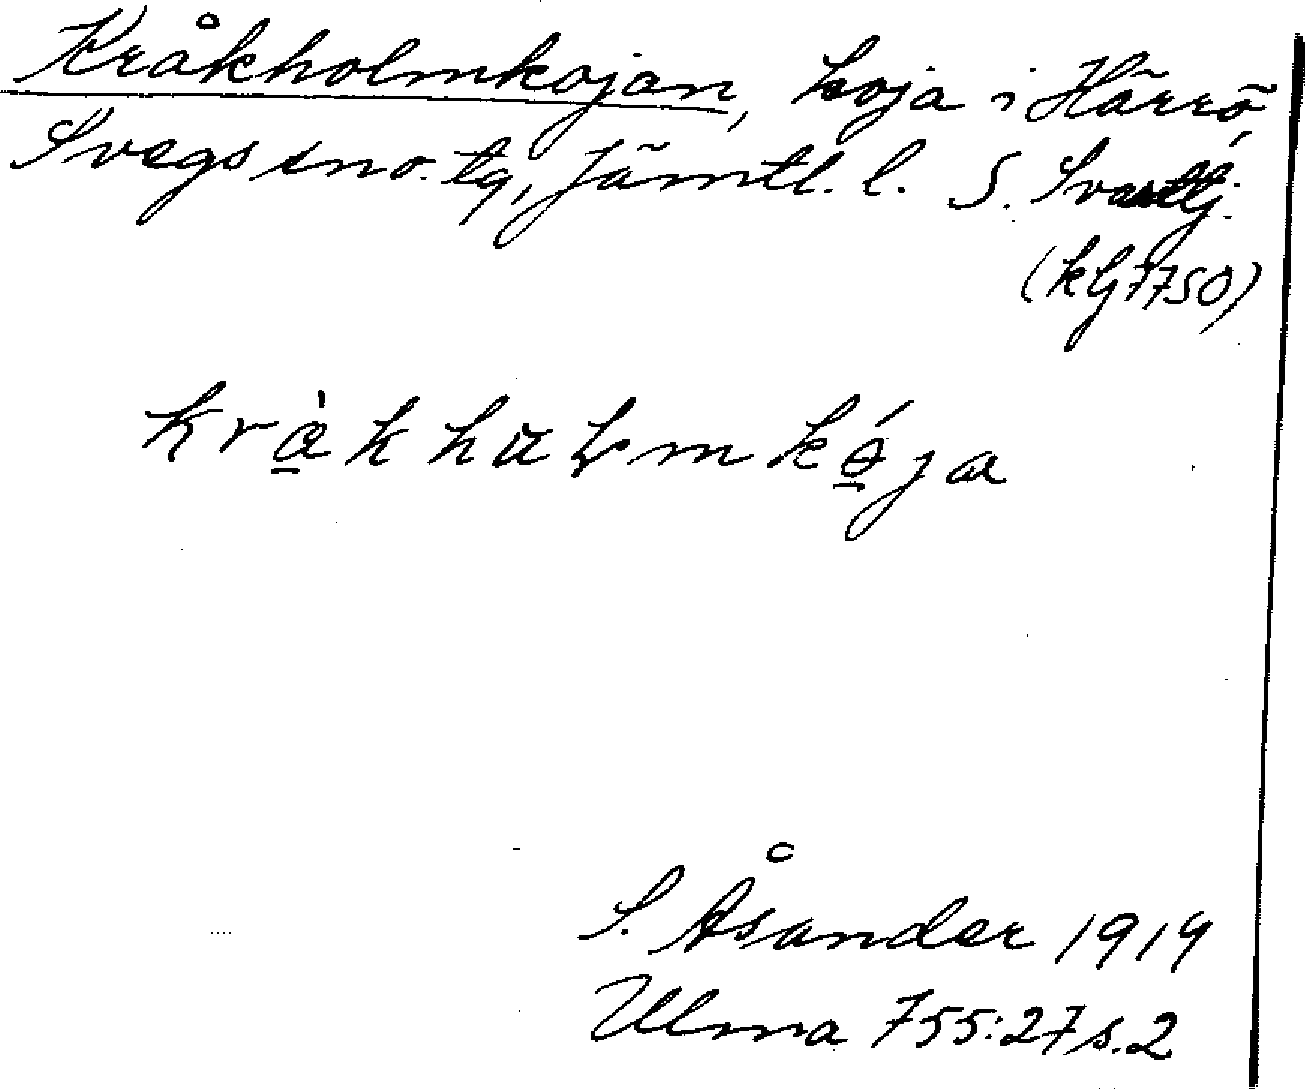 Kråkholmkojan, koja i Härrö,
Svegs sno. tg, Jämtl. l. S. Svartsj.
(kG 7750)
kræ̀khɷłmkója
S. Åsander 1919
Ulma 755:27 s.2